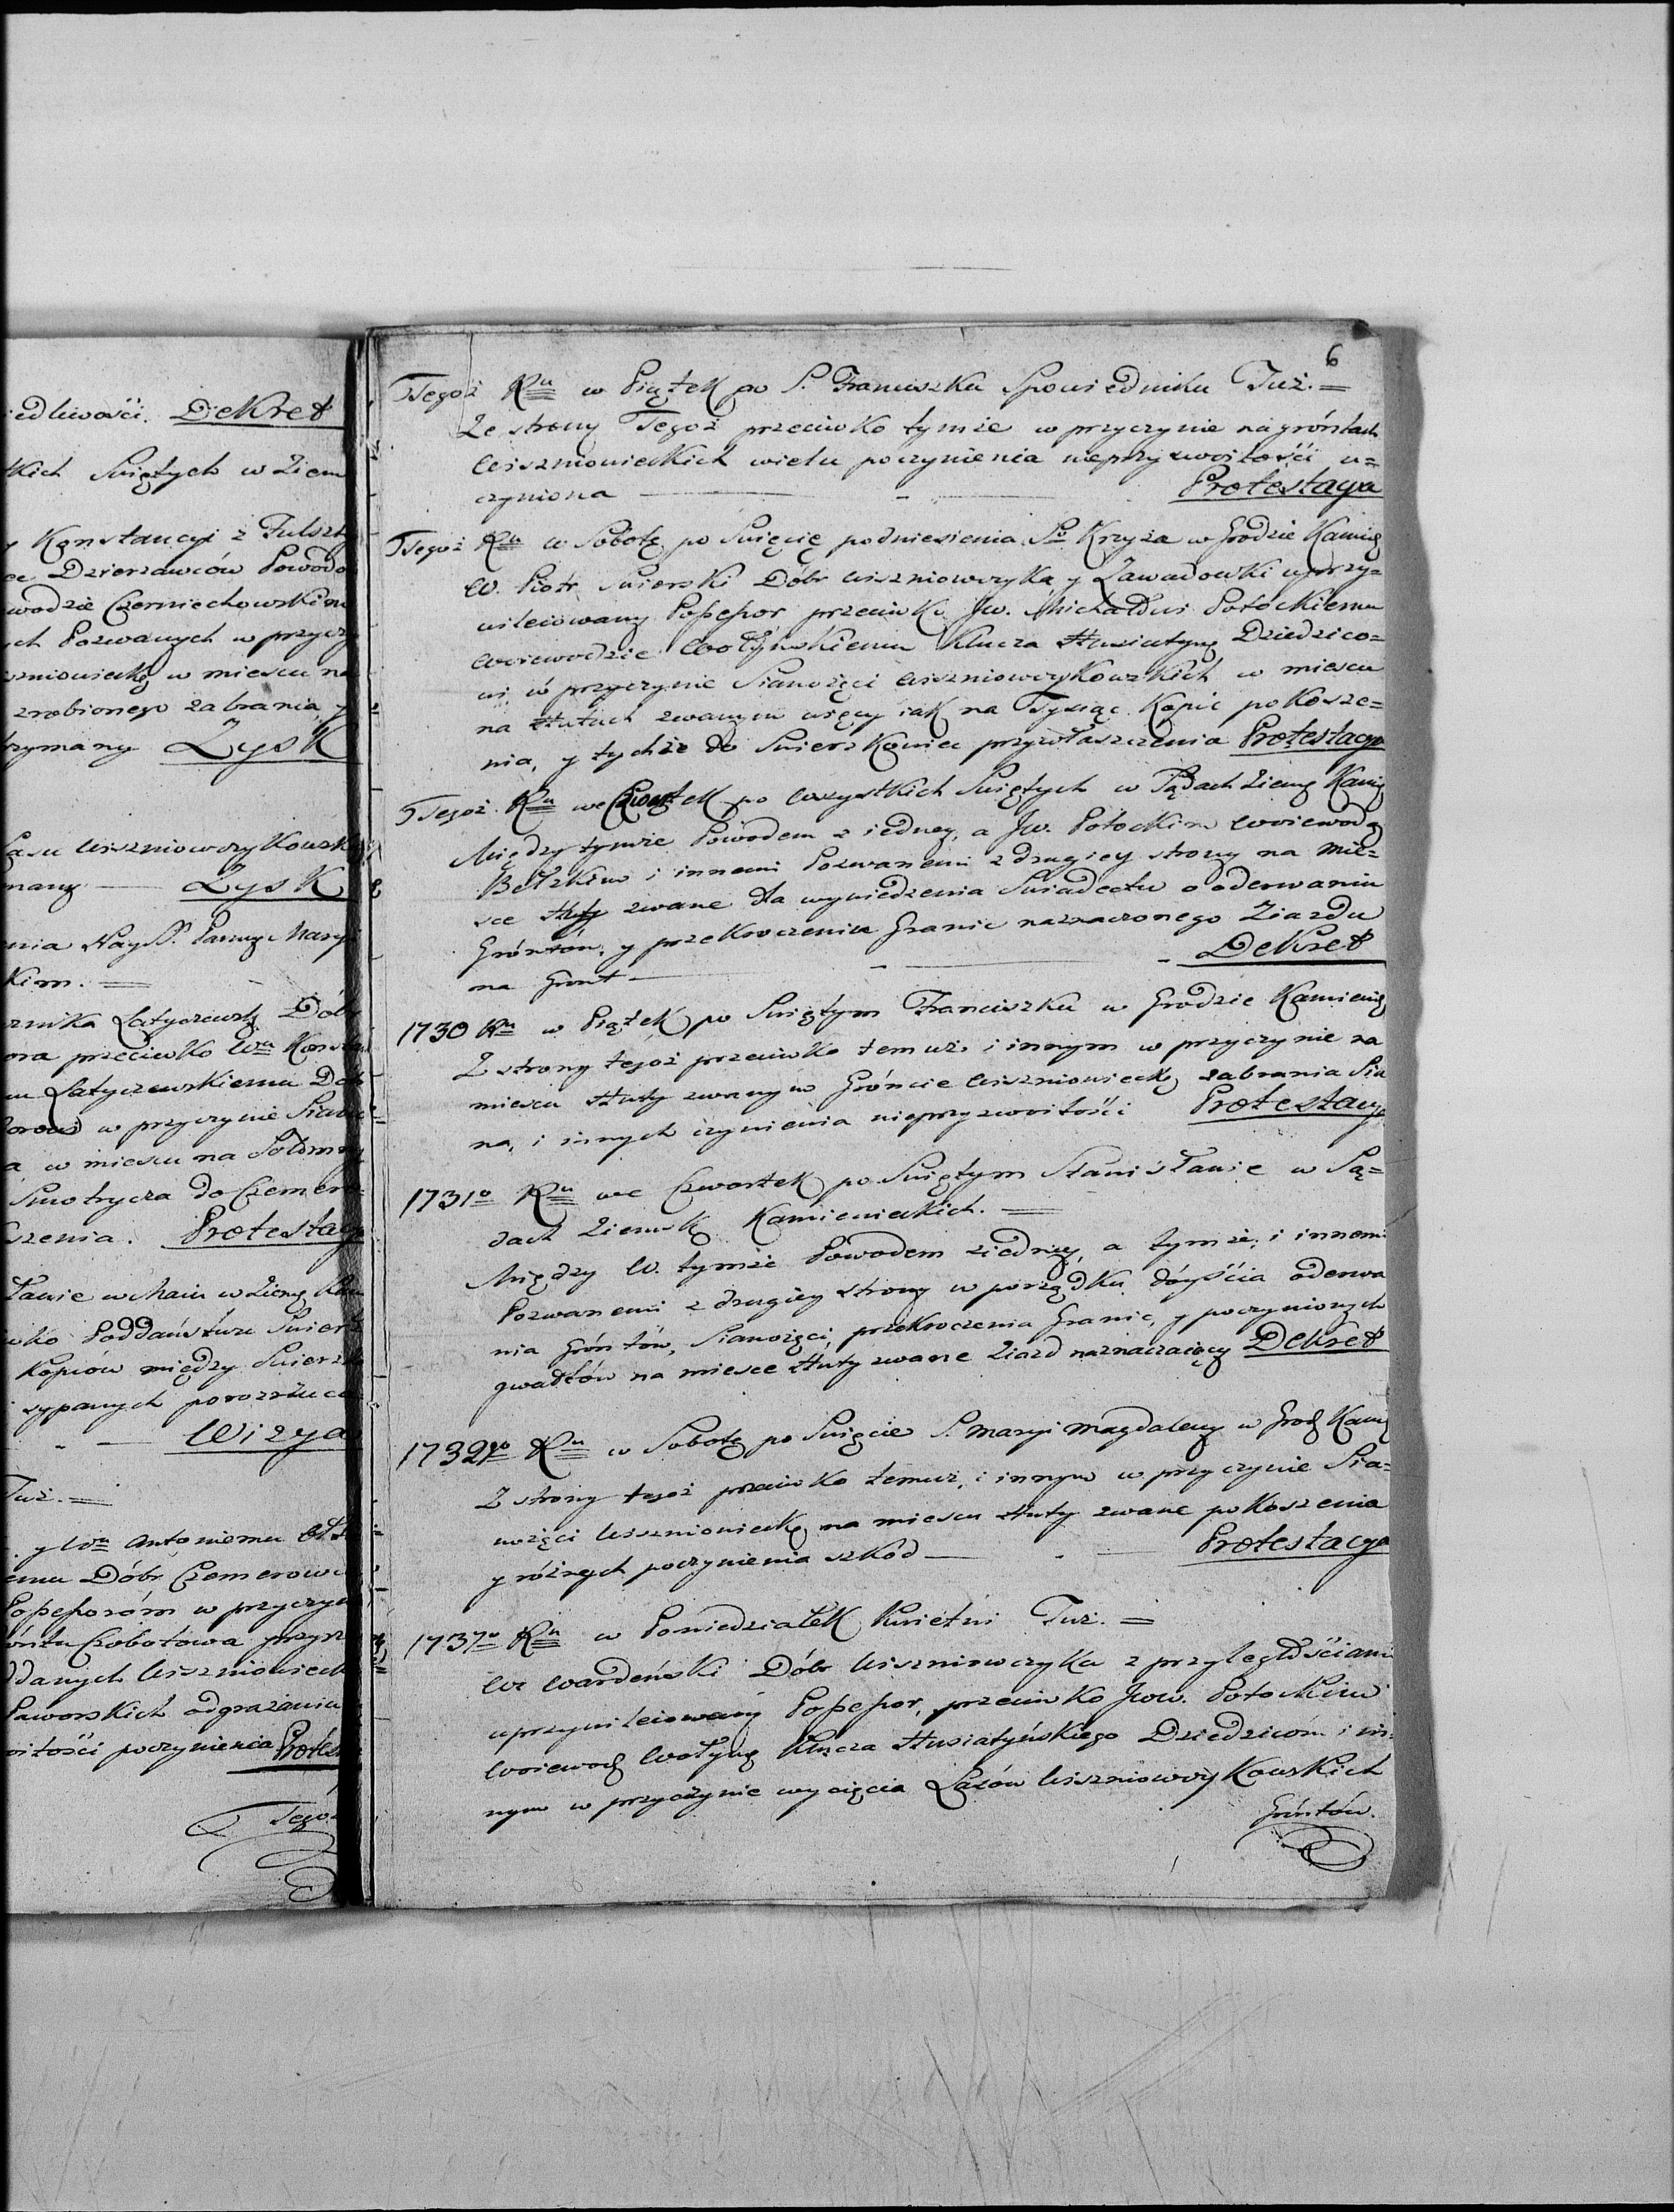 iedliwości. Dekret
tkich Swiętych w Ziem
y Konstancyi z Fulszty
ce Dzierzawców Powodo
wodzie Czerniechowskim
ych Pozwanych w przyczy
szniowieckg w miescu na
zrobionego zabrania y
trzymany Zysk
Lasu Wiszniowczykowsk
many — Zysk
enia Nayś. Panny Maryi
kim. =
Latyczewsk. Dób
ora przeciwko Wu Konsta
u Latyczewskiemu
w przyczynie Siano
a w miescu na
Smotrycza do Czemero
szenia. Protestacy
ławie w Maiu w Ziemg Kam
wko Poddaństwu Swierz
Kopców między Swierz
sypanych porozrzuca
- — Wizya
Tuż. =
y Wu Antoniemu
emu Dóbr Czemerowc
Possessorom w przyczyn
Czobotowa przez
ddanych Wiszniowieck
odgrażania
oitości poczynienia Protes
Tegoż
6
Tegoż Ru w Piątek po S. Franciszku Spowiedniku Tuż. =
Ze strony Tegoż przeciwko tymże w przyczynie na gróntach
Wiszniowieckich wielu poczynienia nieprzyzwoitości u=
czyniona — - — Protestacya
Tegoż Ru w Sobotę po Swięcie podniesienia So Krzyża w Grodzie Kamieg
W. Piotr Swierski Dóbr Wiszniowczyka y Zawadowki uprzy=
wileiowany Possessor przeciwko Jw. Michałowi Potockiemu
Woiewodzie Wołyńskiemu Klucza Husiatyng Dziedzico=
wi w przyczynie Sianożęci Wiszniowczykowskich w miescu
na Hutach zwanym więcy iak na Tysiąc Kopic pokosze=
nia, y tychże do Swierzkowiec przywłaszczenia Protestacya
Tegoż Ru we Czwartek po Wszystkich Swiętych w Sądach Ziemg Kamig
Między tymże Powodem z iedney, a Jw. Potockim Woiewodą
Bełzkim i innemi Pozwanemi z drugiey strony na miey=
sce Huty zwane dla wywiedzenia Swiadectw o oderwaniu
Gróntów, y przekroczeniu Granic naznaczonego Ziazdu
na Grunt — - — - Dekret
1730 Ru w Piątek po Swiętym Franciszku w Grodzie Kamienig
Z strony tegoż przeciwko temuż i innym w przyczynie na
miescu Huty zwanym Gróncie Wiszniowieckg zabrania Sia
na, i innych czynienia nieprzyzwoitości Protestacy
1731o Ru we Czwartek po Swiętym Stanisławie w Są=
dach Ziemsk Kamienieckich. =
Między W. tymże Powodem ziedney, a tymże, i innemi
Pozwanemi z drugiey strony w porządku dóyścia oderwa
nia Gróntów, Sianożęci, przekroczenia Granic, y poczynionych
gwałtów na miesce Huty zwane Ziazd naznaczaiący Dekret
1732go Ru w Sobotę po Swięcie S. Maryi Magdaleny w Grodg Kamig
Z strony tegoż przeciwko temuż, i innym w przyczynie Sia=
nożęci Wiszniowieckg na miescu Huty zwane pokoszenia
y różnych poczynienia szkod — - — Protestacya
1737o Ru w Poniedziałek Kwietni Tuż. =
W Wardeński Dóbr Wiszniowczyka z przyległościami
uprzywileiowany Possessor, przeciwko Jww. Potockim
Woiewodg Wołyng Klucza Husiatyńskiego Dziedzicom i in=
nym w przyczynie wycięcia Lasów Wiszniowczykowskich
Gruntów.